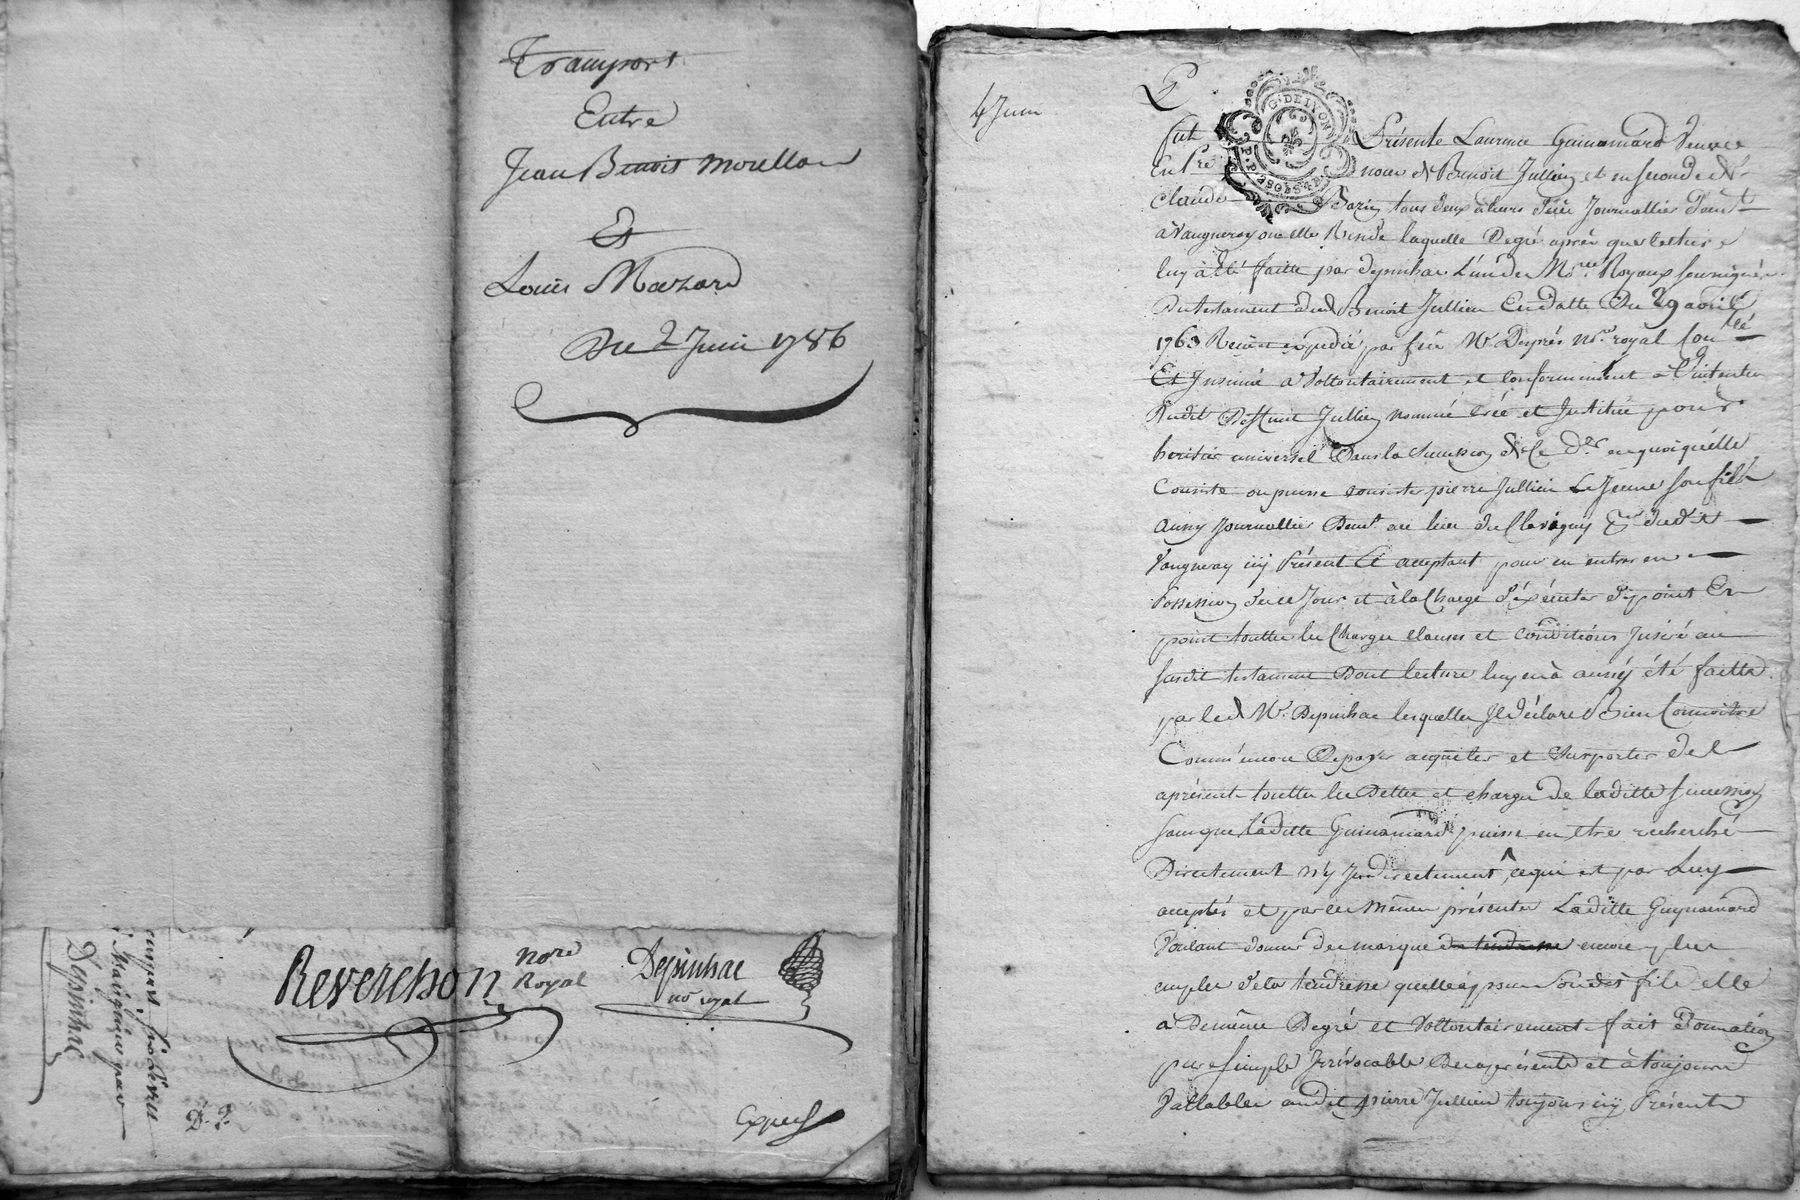 Transport
Entre
Jean Benoit Morellon
Et
Louis Mazard
Du 2 Juin 1786
Reverchon
nore
Royal
Depinhac
no royal
Depinhac
D. P.
Exped
4 Juin
G. DE LYON
Fut Présente Laurence Guinamard Veuve
En Pre noce de Benoit Jullien et en seconde de
Claude tous deux à leurs décè Journallier Demt
à Vaugneray ou elle Reside laquelle Degré après que lecture
luy à été faitte par depinhac L'un des Nres Royaux soussignés
Du testament dud Benoit Jullien En datte Du 29 avril
1763 Reçu et expedié par feu Me Després Nre royal
Et Insinué a Vollontairement et conformement a L'intention
Dudit Deffunt Jullien nommé créé et Institué pour
heritier universel Dans la succession de ce der en quoiquélle
Consiste ou puisse consister pierre Jullien Le Jeune son fils
aussy Journallier Demt au lieu du dudit
Vaugneray icy Présent et acceptant pour en entrer en
Possession de ce Jour et à la Charge d'éxécuter de point En
point touttes les Charges clauses et conditions Inséré au
susdit testament Dont lecture luy en à aussy été faitte
par led Me Depinhac lesquelles Il déclare Bien Connoitre
Comm'encore De payer acquiter et Supporter de
apresent touttes les Dettes et charges de laditte succession
sans que laditte Guinamard puisse en etre recherché
Directement n'y Indirectement, ce qui et par Luy
accepté et par ces mêmes présentes Laditte Guynamard
Voulant donner des marques des tendresse encore plus
amples de la tendresse quelle a pour Sondit fils elle
a De même Degré et Vollontairement fait Donnation
pure simple Irrévocable De apresente et à toujours
Vallable audit pierre Jullien toujours icy Présent